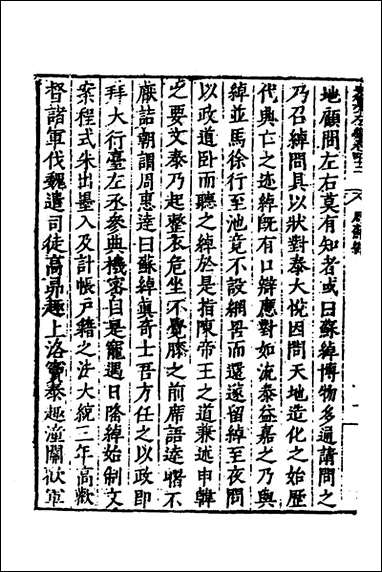 地顧問左右莫有知者或曰蘇綽博物多通請問之
乃召綽問具以狀對泰大悅因問天地造化之始歷
代興亡之迹綽既有口辯應對如流泰益嘉之乃與
綽並馬徐行至池竟不設網罟而還遂留綽至夜問
以政道臥而聽之綽於是指陳帝王之道兼述申韓
之要文泰乃起整衣危坐不覺膝之前席語遂曙不
厭詰朝謂周惠達曰蘇綽眞奇士吾方任之以政即
拜大行臺左丞參典機密自是寵遇日隆綽始制文
案程式朱出墨入及計帳戶籍之法大統三年高歡
督諸軍伐魏遣司徒高昻趣上洛竇泰趣潼關歡軍